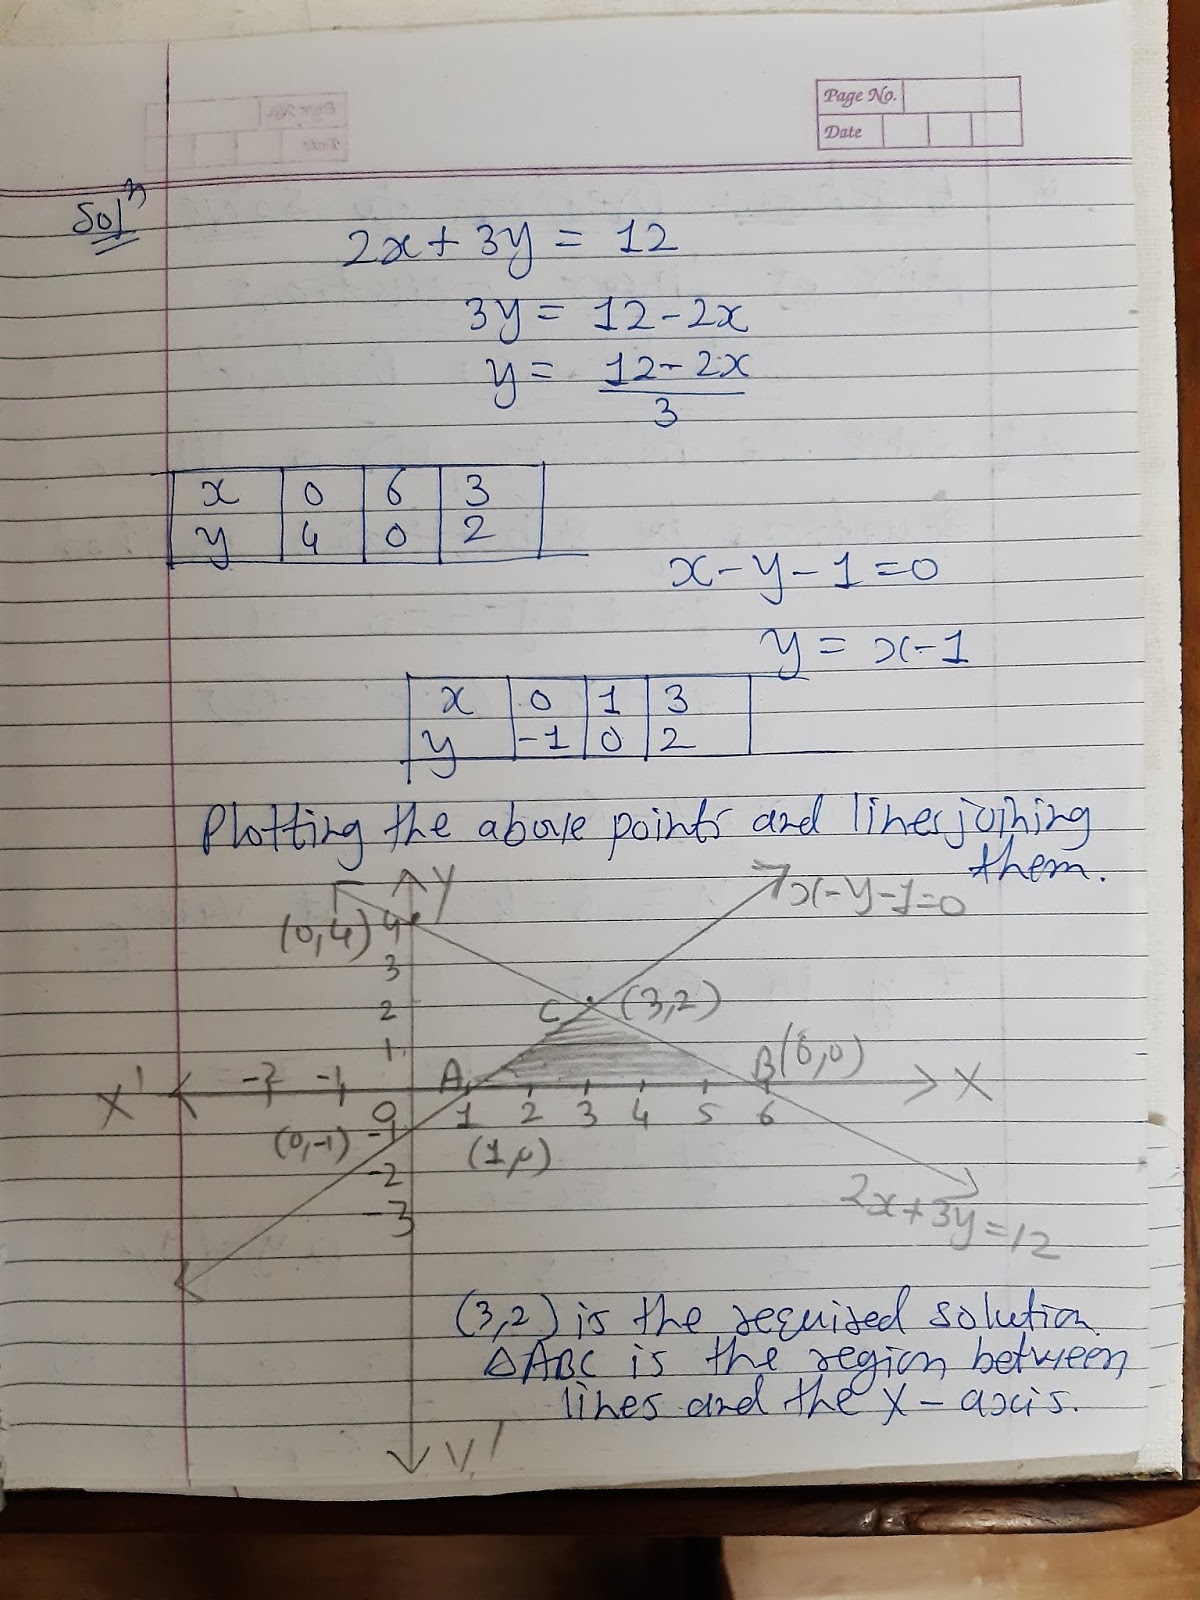 Page No.
Date
Solⁿ
2x + 3y = 12
3y = 12 - 2x
y = 12 - 2x
3
x 0 6 3
y 4 0 2
x - y - 1 = 0
y = x - 1
x 0 1 3
y -1 0 2
Plotting the above points and lines joining
them.
Y
x-y-1=0
(0,4) 4
3
2 C (3,2)
1
A B(6,0)
X' -2 -1 X
0 1 2 3 4 5 6
(0,-1) -1 (1,0)
-2
-3
2x+3y=12
(3,2) is the required solution.
△ABC is the region between
lines and the X-axis.
Y'